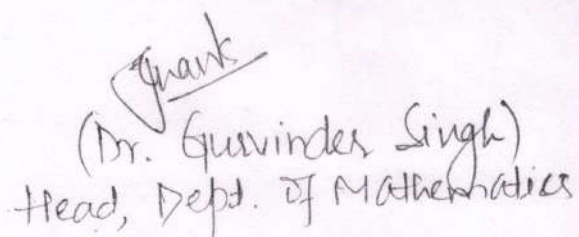 (Dr. Gurvinder Singh)
Head, Dept. of Mathematics